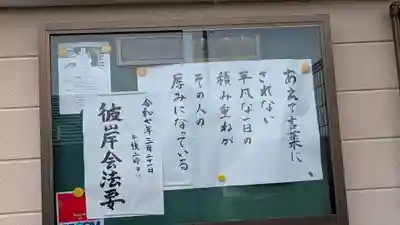 あえて言葉に
されない
平凡な一日の
積み重ねが
その人の
厚みになっている
令和七年三月二十一日
午後二時ヨリ
彼岸会法要